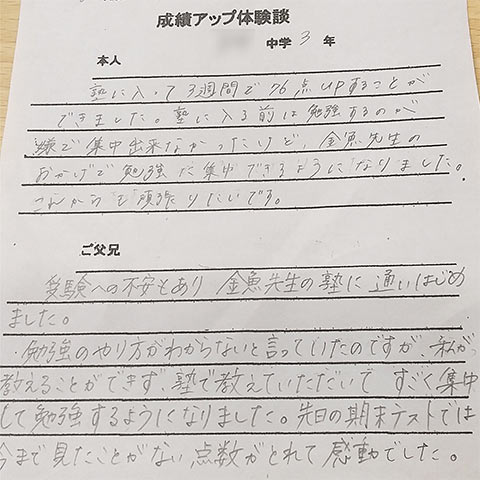 成績アップ体験談
中学 3 年
本人
塾に入って3週間で76点UPすることが
できました。塾に入る前は勉強するのが
嫌で集中出来なかったけど、金魚先生の
おかげで勉強に集中できるようになりました。
これからも頑張りたいです。
ご父兄
受験への不安もあり 金魚先生の塾に通いはじめ
ました。
勉強のやり方がわからないと言っていたのですが、私が
教えることができず、塾で教えていただいて すごく集中
して勉強するようになりました。先日の期末テストでは
今まで見たことがない点数がとれて感動でした。